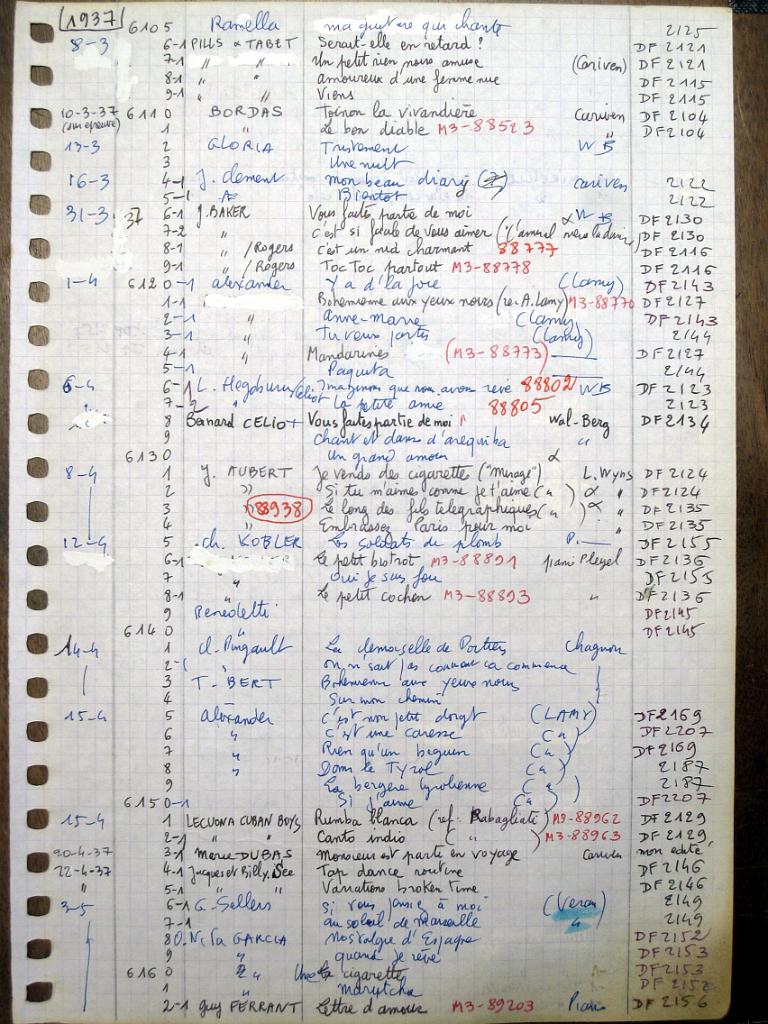 1937 6105 Ramella ma guitare qui chante 2125
8-3 6-1 PILLS & TABET Serait-elle en retard? DF 2121
7-1 " " Un petit rien nous amuse (Cariven) DF 2121
8-1 " " amoureux d'une femme nue DF 2115
9-1 " " Viens DF 2115
10-3-37 6110 BORDAS Toinon la vivandière Cariven DF 2104
1 " Le bon diable M3-88523 " DF 2104
13-3 2 GLORIA Tristement WB
3 Une nuit
16-3 4-1 J. Clement mon beau diary cariven 2122
5-1 Bientot 2122
31-3 37 6-1 J. BAKER Vous faites partie de moi WB DF 2130
7-2 " c'est si facile de vous aimer DF 2130
8-1 " /Rogers c'est un nid charmant 88777 DF 2116
9-1 " /Rogers Toc Toc partout M3-88778 DF 2116
1-4 6120-1 alexander Y a d'la joie (Lamy) DF 2143
1-1 Bohemienne aux yeux noirs (re. A. Lamy) M3-88770 DF 2127
2-1 " anne-marie (Lamy) DF 2143
3-1 " Tu veux partir (Lamy) 2144
4-1 " Mandarines (M3-88773) DF 2127
5-1 Paquita 2144
6-4 6-1 L. Hegoburu/Eliot Imaginons que nous avons revé 88802 WB DF 2123
7-2 " la petite amie 88805 2123
8 Bernard CELIOT Vous faites partie de moi Wal-Berg DF 2134
9 chant et danse d'arequiba "
6130 Un grand amour α
8-4 1 J. AUBERT Je vends des cigarettes ("mirage") L. Wyns DF 2124
2 " Si tu m'aimes comme je t'aime ( " ) α " DF 2124
3 " 88938 Le long des fils telegraphiques ( " ) α " DF 2135
4 " Embrassez Paris pour moi " DF 2135
12-4 5 ch. KOBLER Les soldats de plomb P. DF 2155
6-1 Le petit bistrot M3-88891 piano Pleyel DF 2136
7 " Oui je suis fou DF 2155
8-1 " Le petit cochon M3-88893 " DF 2136
9 Benedetti DF 2145
6140 " DF 2145
14-4 1 d. Pingault La demoiselle de Poitiers Chagnon
2-1 " on ne sait pas comment ca commence
3 T. BERT Bohemienne aux yeux noirs
4 Sur mon chemin
15-4 5 alexander c'est mon petit doigt (LAMY) DF 2169
6 " c'est une caresse ( " ) DF 2207
7 " Rien qu'un beguin ( " ) DF 2169
8 " Dans le Tyrol ( " ) 2187
9 La bergere tyrolienne ( " ) 2187
6150-1 Si j'aime ( " ) DF 2207
15-4 1 LECUONA CUBAN BOYS Rumba blanca (ref. Rabagliati) M3-88962 DF 2129
2-1 " " Canto indio ( " ) M3-88963 DF 2129
20-4-37 3-1 Marie DUBAS Monsieur est parti en voyage Cariven non edité
22-4-37 4-1 Jacques et Billy. See Tap dance routine DF 2146
" 5-1 " " Variations broken time DF 2146
3-5 6-1 G. Sellers Si vous pensiez à moi (Veran) 2149
7-1 au soleil de Marseille " 2149
8 O. Nita GARCIA Nostalgie d'Espagne DF 2152
9 " quand je reve DF 2153
6160 " Une cigarette DF 2153
1 marytcha DF 2152
2-1 guy FERRANT Lettre d'amour M3-89203 Piano DF 2156